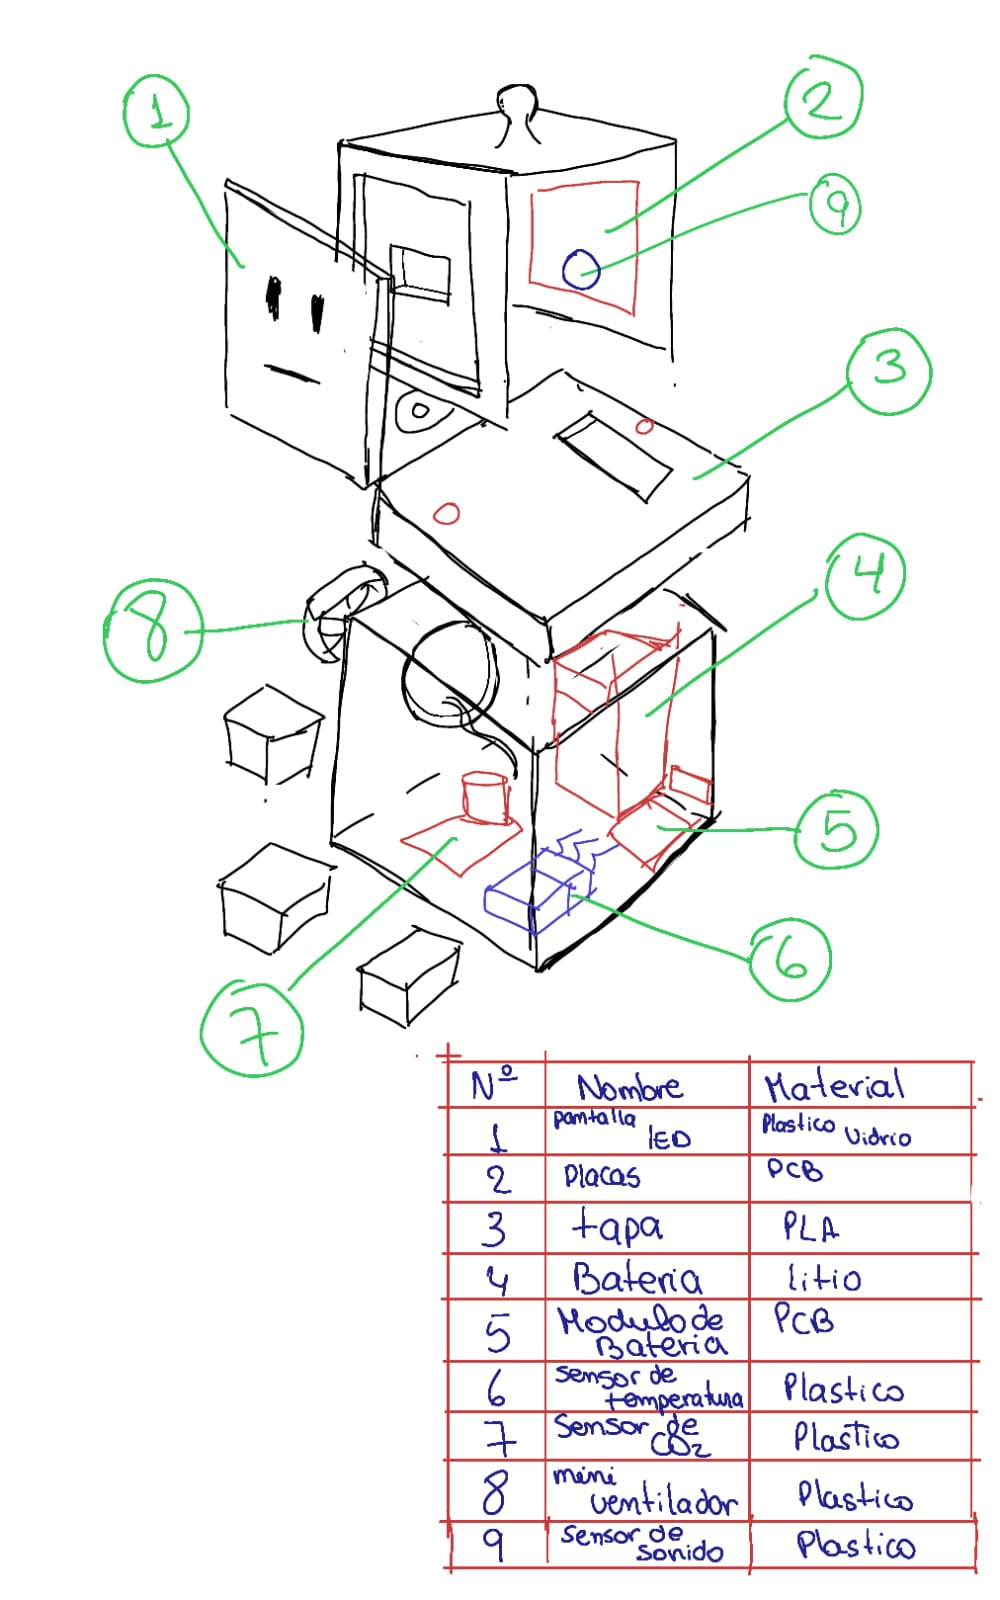 1
2
9
3
4
8
5
6
7
Nº Nombre Material
1 pamtalla lED Plastico Vidrio
2 Placas PCB
3 tapa PLA
4 Bateria litio
5 Modulo de Bateria PCB
6 sensor de temperatura Plastico
7 Sensor de CO2 Plastico
8 mini ventilador Plastico
9 sensor de sonido Plastico